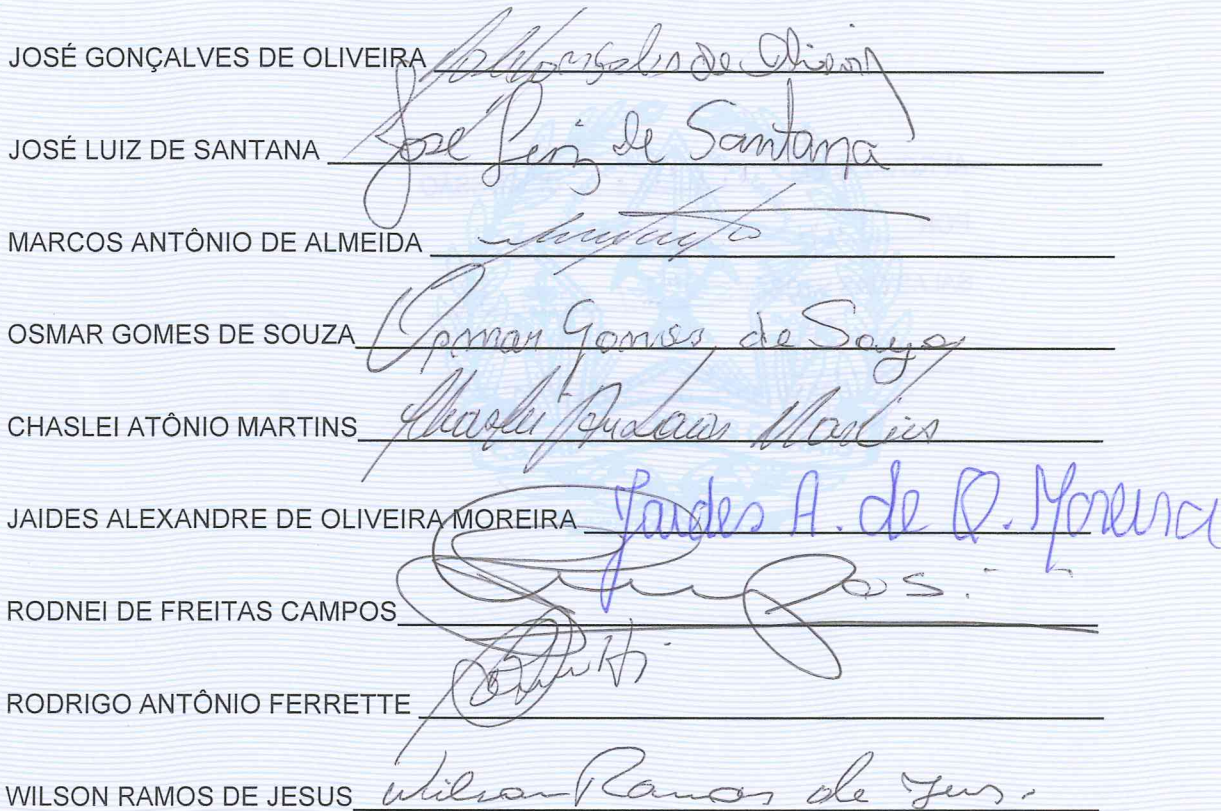 JOSÉ GONÇALVES DE OLIVEIRA de
JOSÉ LUIZ DE SANTANA José Luiz de Santana
MARCOS ANTÔNIO DE ALMEIDA
OSMAR GOMES DE SOUZA Osmar Gomes de Souza
CHASLEI ATÔNIO MARTINS Chaslei Martins
JAIDES ALEXANDRE DE OLIVEIRA MOREIRA Jaides A. de O. Moreira
RODNEI DE FREITAS CAMPOS
RODRIGO ANTÔNIO FERRETTE
WILSON RAMOS DE JESUS Wilson Ramos de Jesus